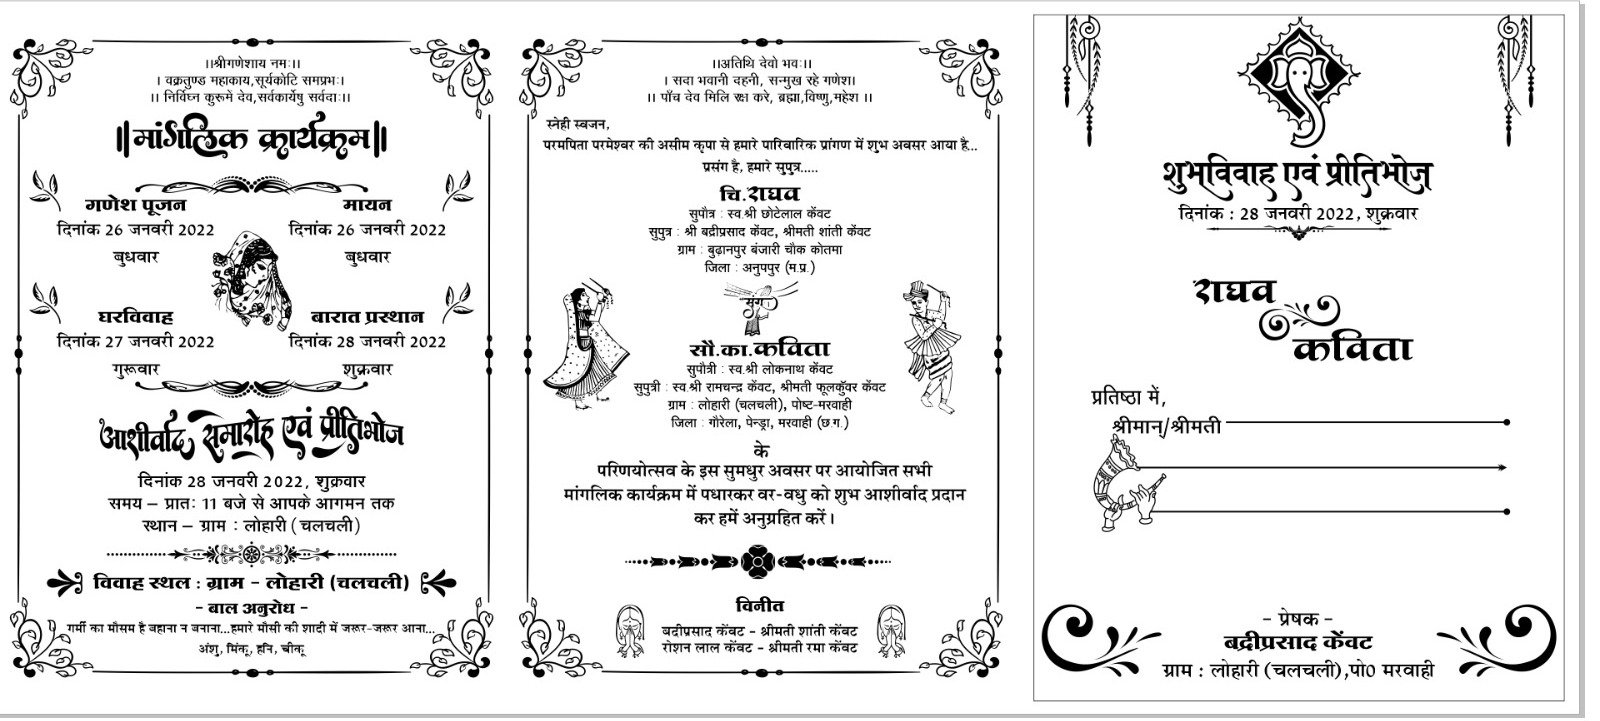 ।।श्रीगणेशाय नमः।।
। वक्रतुण्ड महाकाय,सूर्यकोटि समप्रभः।
।। निर्विघ्न कुरूमे देव,सर्वकार्येषु सर्वदाः।।
॥मांगलिक कार्यक्रम॥
गणेश पूजन
दिनांक 26 जनवरी 2022
बुधवार
मायन
दिनांक 26 जनवरी 2022
बुधवार
घरविवाह
दिनांक 27 जनवरी 2022
गुरूवार
बारात प्रस्थान
दिनांक 28 जनवरी 2022
शुक्रवार
आशीर्वाद समारोह एवं प्रीतिभोज
दिनांक 28 जनवरी 2022, शुक्रवार
समय – प्रातः 11 बजे से आपके आगमन तक
स्थान – ग्राम : लोहारी (चलचली)
विवाह स्थल : ग्राम - लोहारी (चलचली)
- बाल अनुरोध -
गर्मी का मौसम है बहाना न बनाना...हमारे मौसी की शादी में जरूर-जरूर आना...
अंशु, मिंकू, हनि, चीकू
।।अतिथि देवो भवः।।
। सदा भवानी दहनी, सन्मुख रहे गणेश।
।। पाँच देव मिलि रक्ष करे, ब्रह्मा,विष्णु,महेश ।।
स्नेही स्वजन,
परमपिता परमेश्वर की असीम कृपा से हमारे पारिवारिक प्रांगण में शुभ अवसर आया है...
प्रसंग है, हमारे सुपुत्र.....
चि.राघव
सुपौत्र : स्व.श्री छोटेलाल केंवट
सुपुत्र : श्री बद्रीप्रसाद केंवट, श्रीमती शांती केंवट
ग्राम : बुढ़ानपुर बंजारी चौक कोतमा
जिला : अनुपपुर (म.प्र.)
संग
सौ.का.कविता
सुपौत्री : स्व.श्री लोकनाथ केंवट
सुपुत्री : स्व.श्री रामचन्द्र केंवट, श्रीमती फूलकुँवर केंवट
ग्राम : लोहारी (चलचली), पोष्ट-मरवाही
जिला : गौरेला, पेन्ड्रा, मरवाही (छ.ग.)
के
परिणयोत्सव के इस सुमधुर अवसर पर आयोजित सभी
मांगलिक कार्यक्रम में पधारकर वर-वधु को शुभ आशीर्वाद प्रदान
कर हमें अनुग्रहित करें।
विनीत
बद्रीप्रसाद केंवट - श्रीमती शांती केंवट
रोशन लाल केंवट - श्रीमती रमा केंवट
शुभविवाह एवं प्रीतिभोज
दिनांक : 28 जनवरी 2022, शुक्रवार
राघव
कविता
प्रतिष्ठा में,
श्रीमान्/श्रीमती
- प्रेषक -
बद्रीप्रसाद केंवट
ग्राम : लोहारी (चलचली),पो0 मरवाही